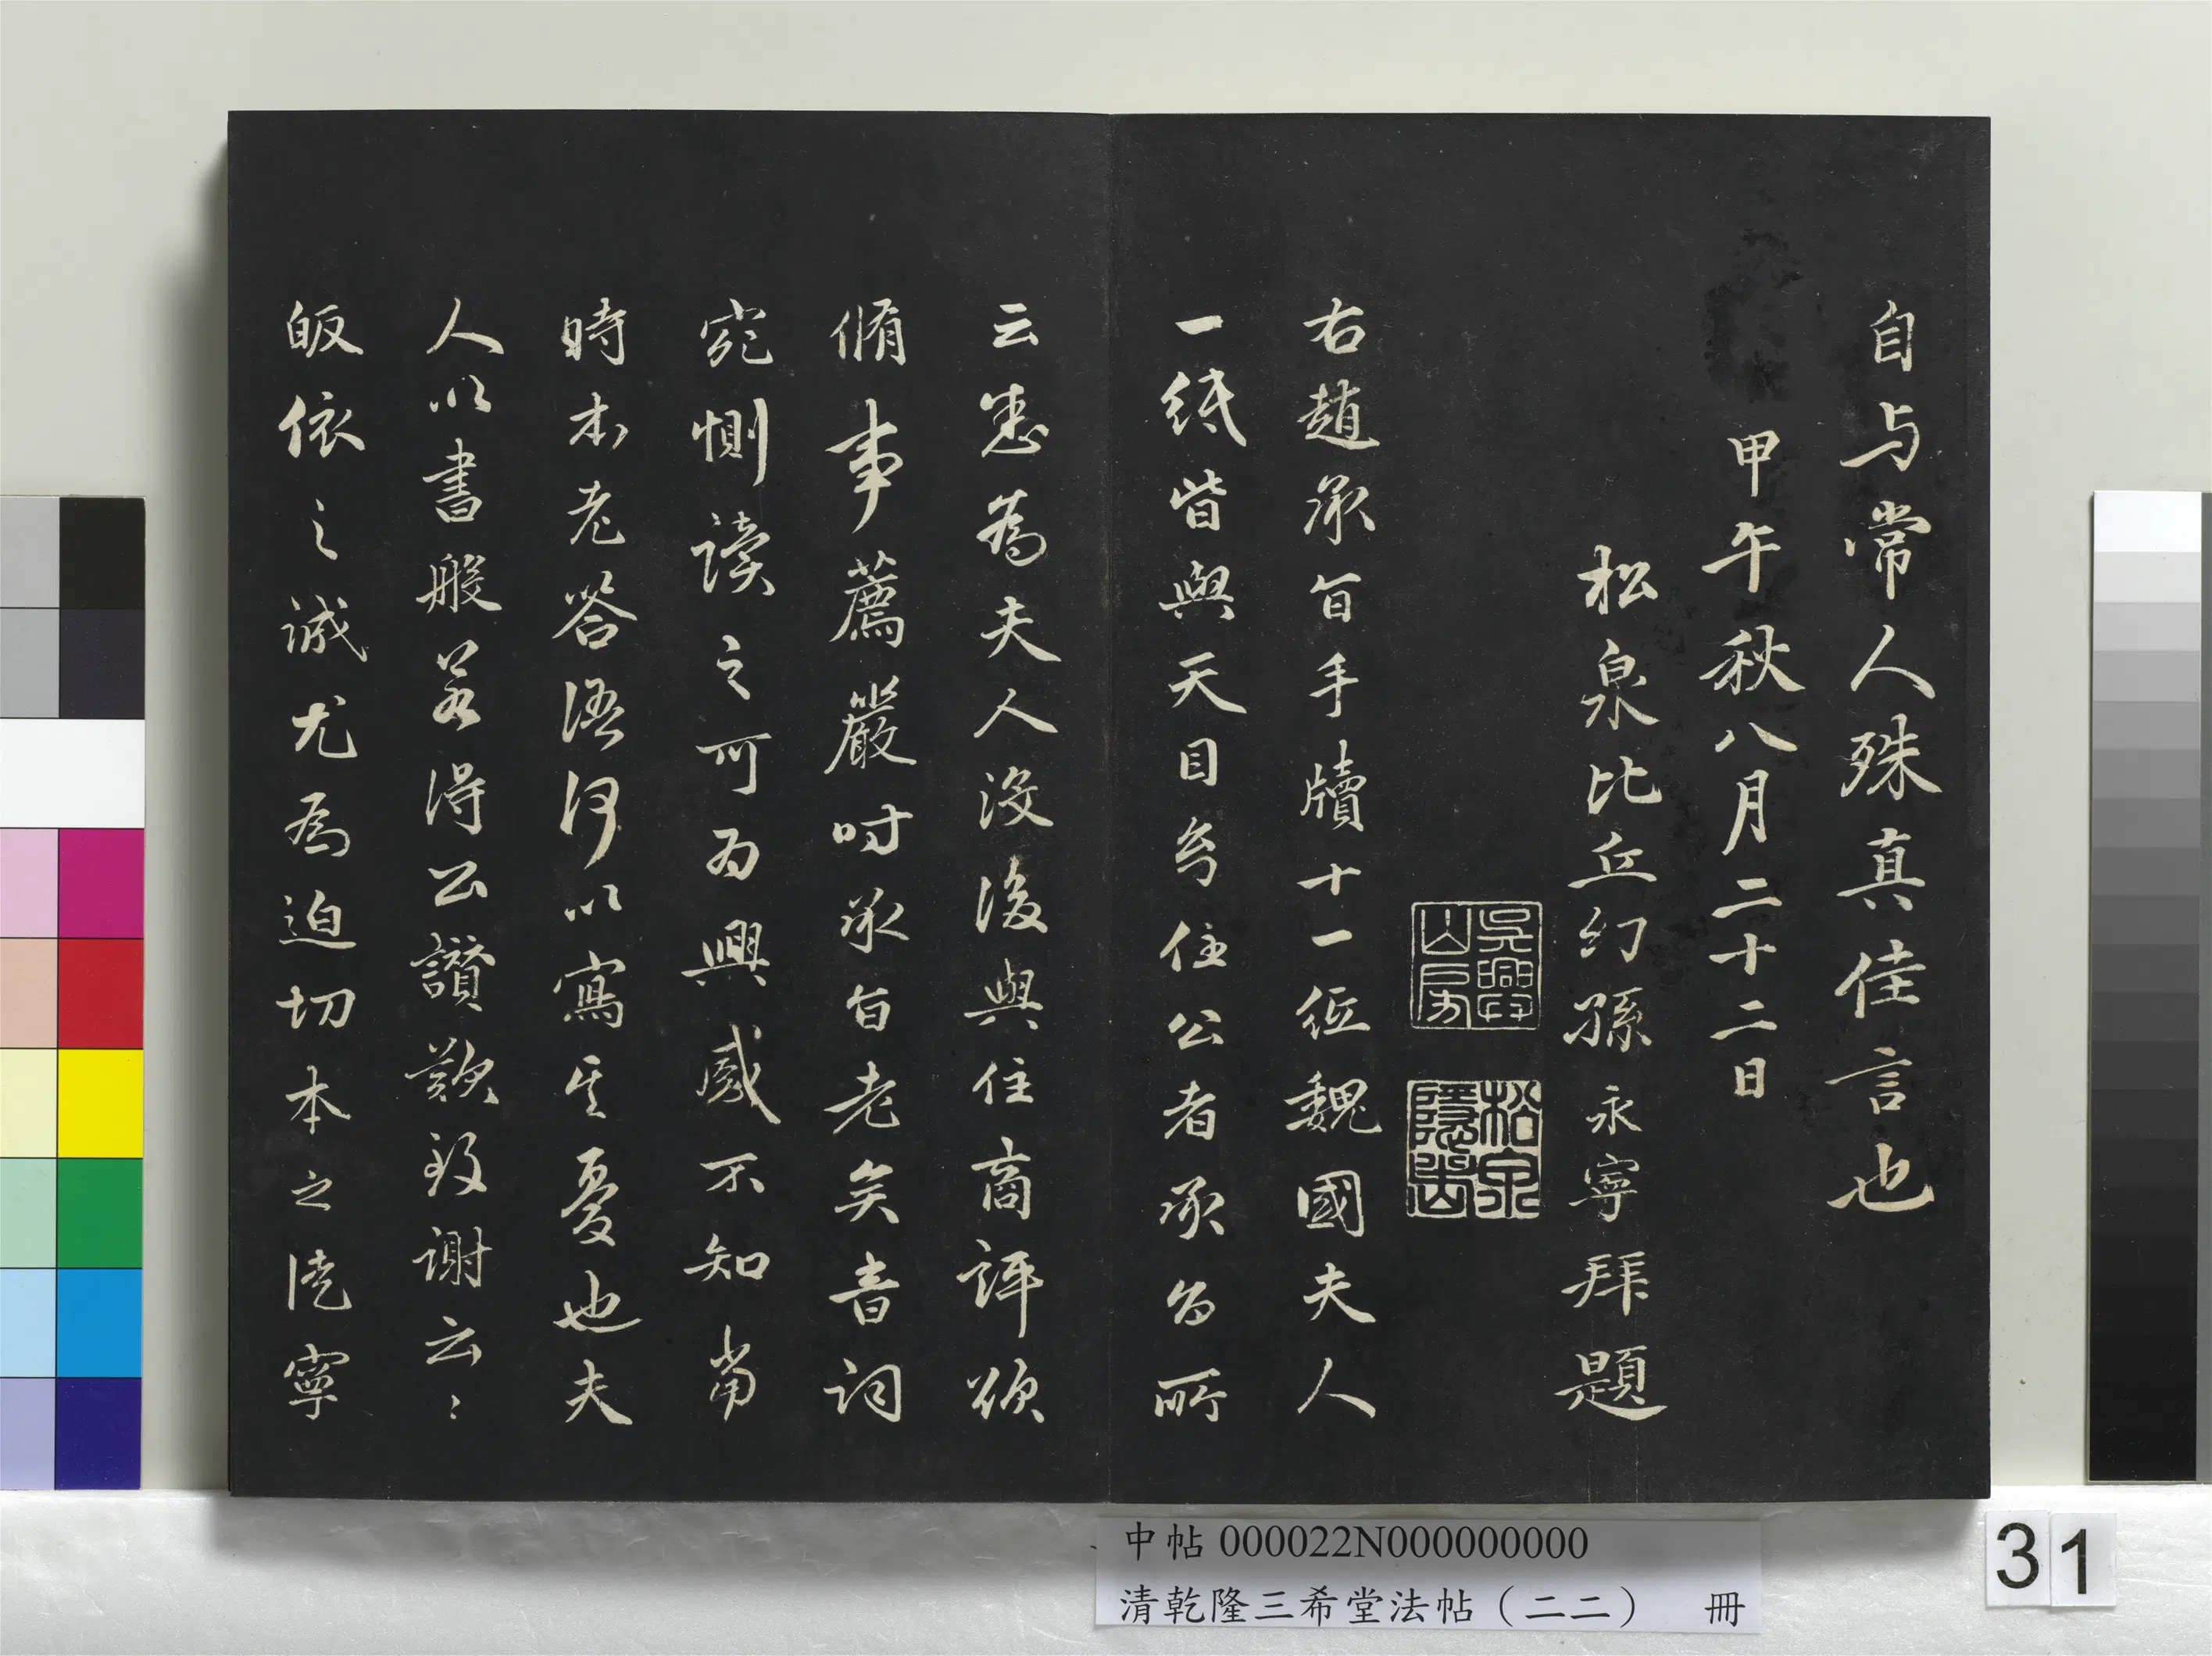 自与常人殊真佳言也
甲午秋八月二十二日
松泉比丘幻孫永寧拜題
吳興山房
松泉隱岩
右趙承旨手牘十一紙魏國夫人
一紙皆與天目幻住公者承旨所
云悉為夫人沒後與住商評欲
脩事薦嚴時承旨老矣音詞
宛惻讀之可為興感不知當
時本老答語何以寫其憂也夫
人以書般若得公讚歎致謝云〻
皈依之誠尤為迫切本之徒寧
中帖 000022N000000000
清乾隆三希堂法帖（二二） 冊
31